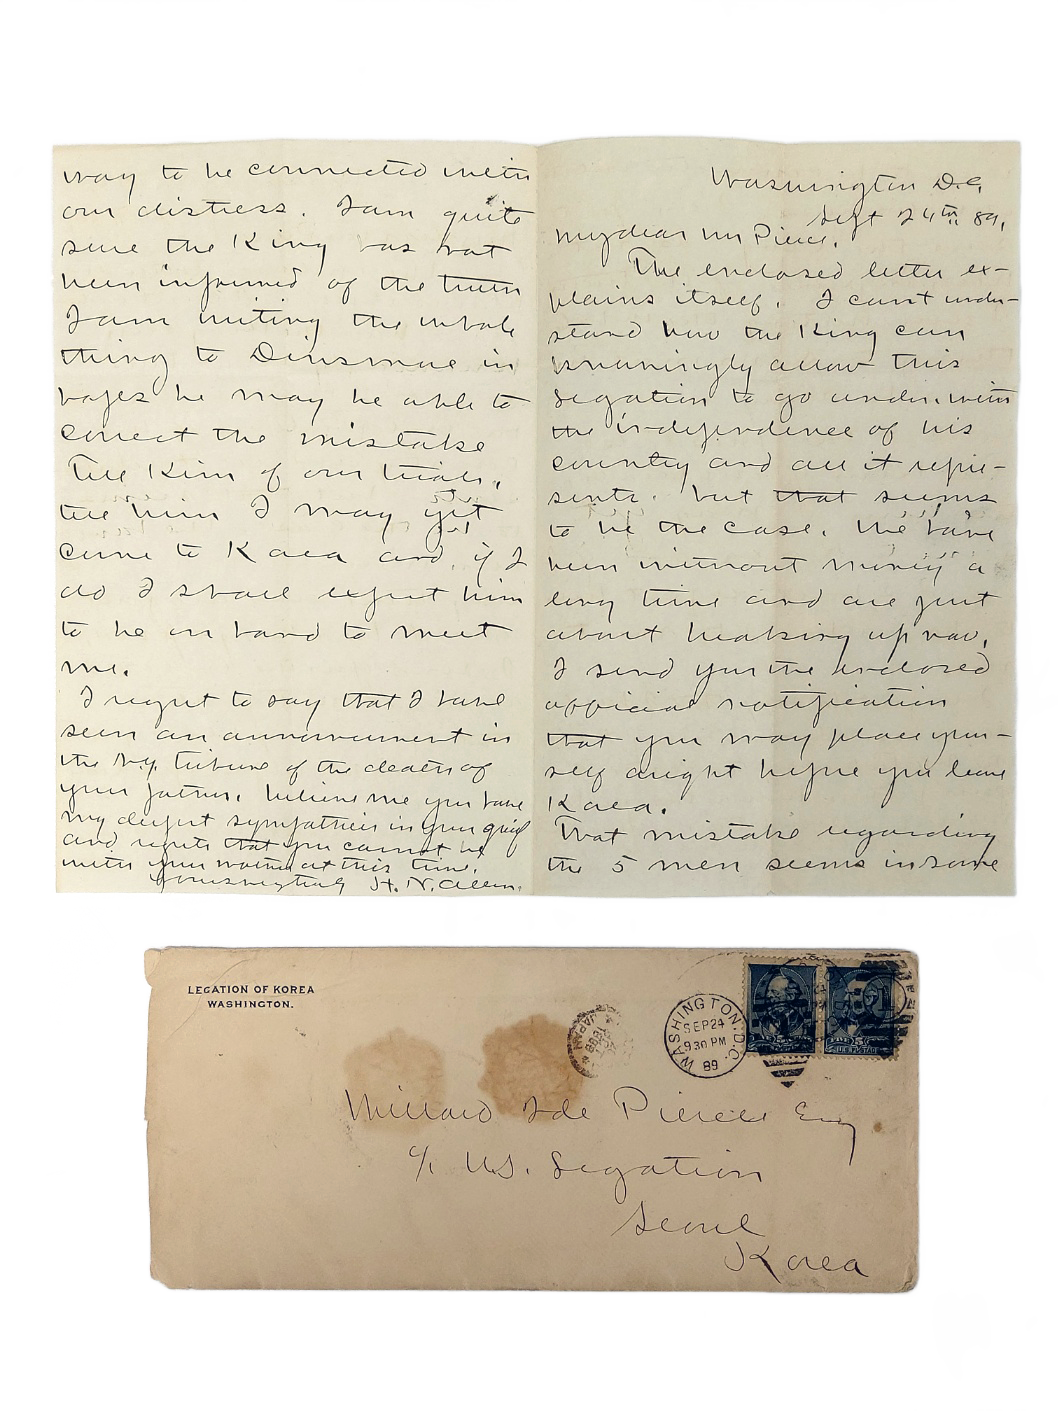 Washington D.C.
Sept 24th 89.
My dear Mr Pierce,
The enclosed letter ex-
plains itself. I can't under-
stand how the King can
knowingly allow this
Legation to go under, with
the independence of his
country and all it repre-
sents. but that seems
to be the case. We have
been without money a
long time and are just
about breaking up now.
I send you the enclosed
official notification
that you may place your-
self aright before you leave
Korea.
That mistake regarding
the 5 men seems in some
way to be connected with
our distress. I am quite
sure the King has not
been informed of the truth
I am writing the whole
thing to Dinsmore in
hopes he may be able to
correct the mistake
Tell Kim of our trials,
tell him I may yet
come to Korea and, if I
do I shall expect him
to be on hand to meet
me.
I regret to say that I have
seen an announcement in
the N.Y. Tribune of the death of
your father. believe me you have
my deepest sympathies in your grief
and regrets that you cannot be
with your mother at this time.
Yours respectfully H. N. Allen.
LEGATION OF KOREA
WASHINGTON.
JAPAN
WASHINGTON, D.C.
SEP 24
930 PM
89
U.S. POSTAGE
Willard Ide Pierce Esq
c/o U.S. Legation
Seoul
Korea